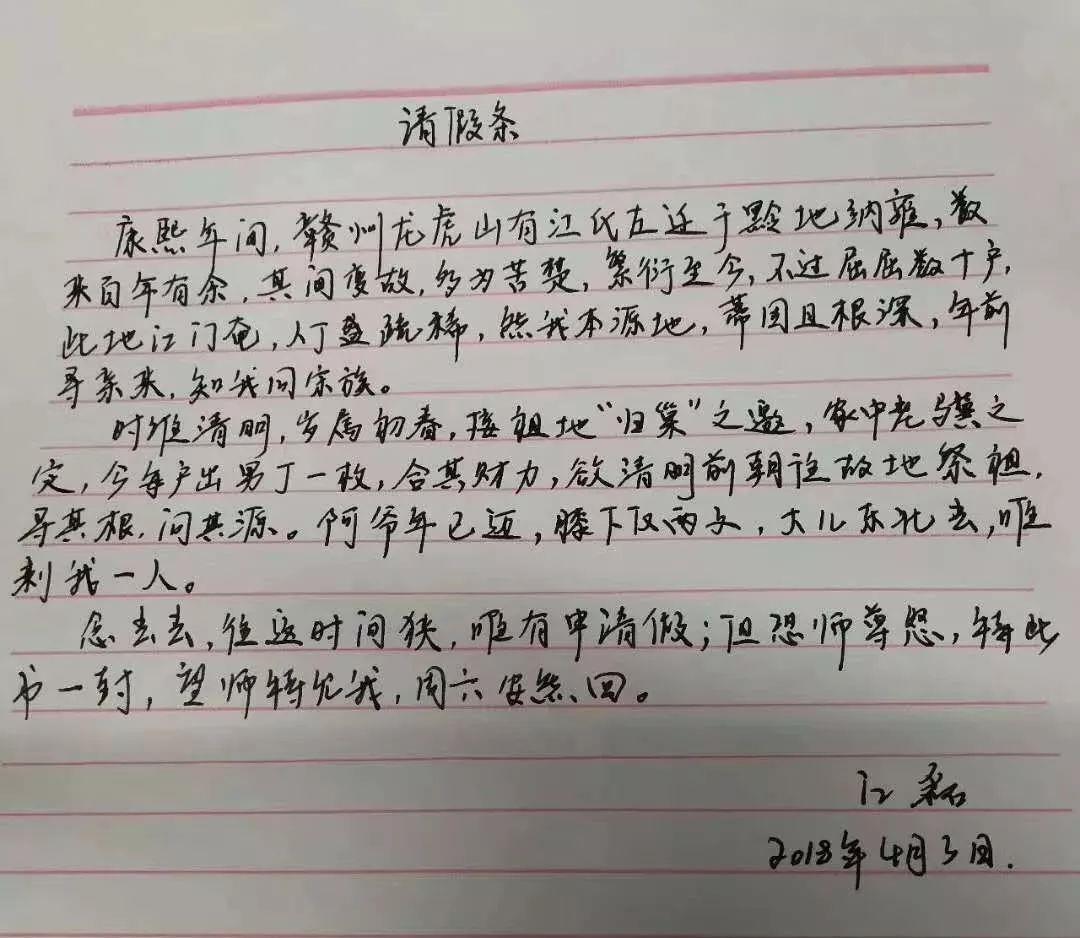 请假条
康熙年间,赣州龙虎山有江氏左迁于黔地纳雍,数
来百年有余,其间变故,多为苦楚,繁衍至今,不过屈屈数十户,
此地江门奄,人丁盏疏稀,然我本源地,蒂固且根深,年前
寻亲来,知我同宗族。
时维清明,岁属初春,接祖地“归巢”之邀,家中老骥之
定,今每户出男丁一枚,合其财力,欲清明前朝往故地祭祖,
寻其根,问其源。阿爷年已迈,膝下仅两子,大儿东北去,唯
剩我一人。
念去去,往返时间狭,唯有申请假;但恐师尊怒,特此
书一封,望师特允我,周六安然回。
江磊
2018年4月3日.